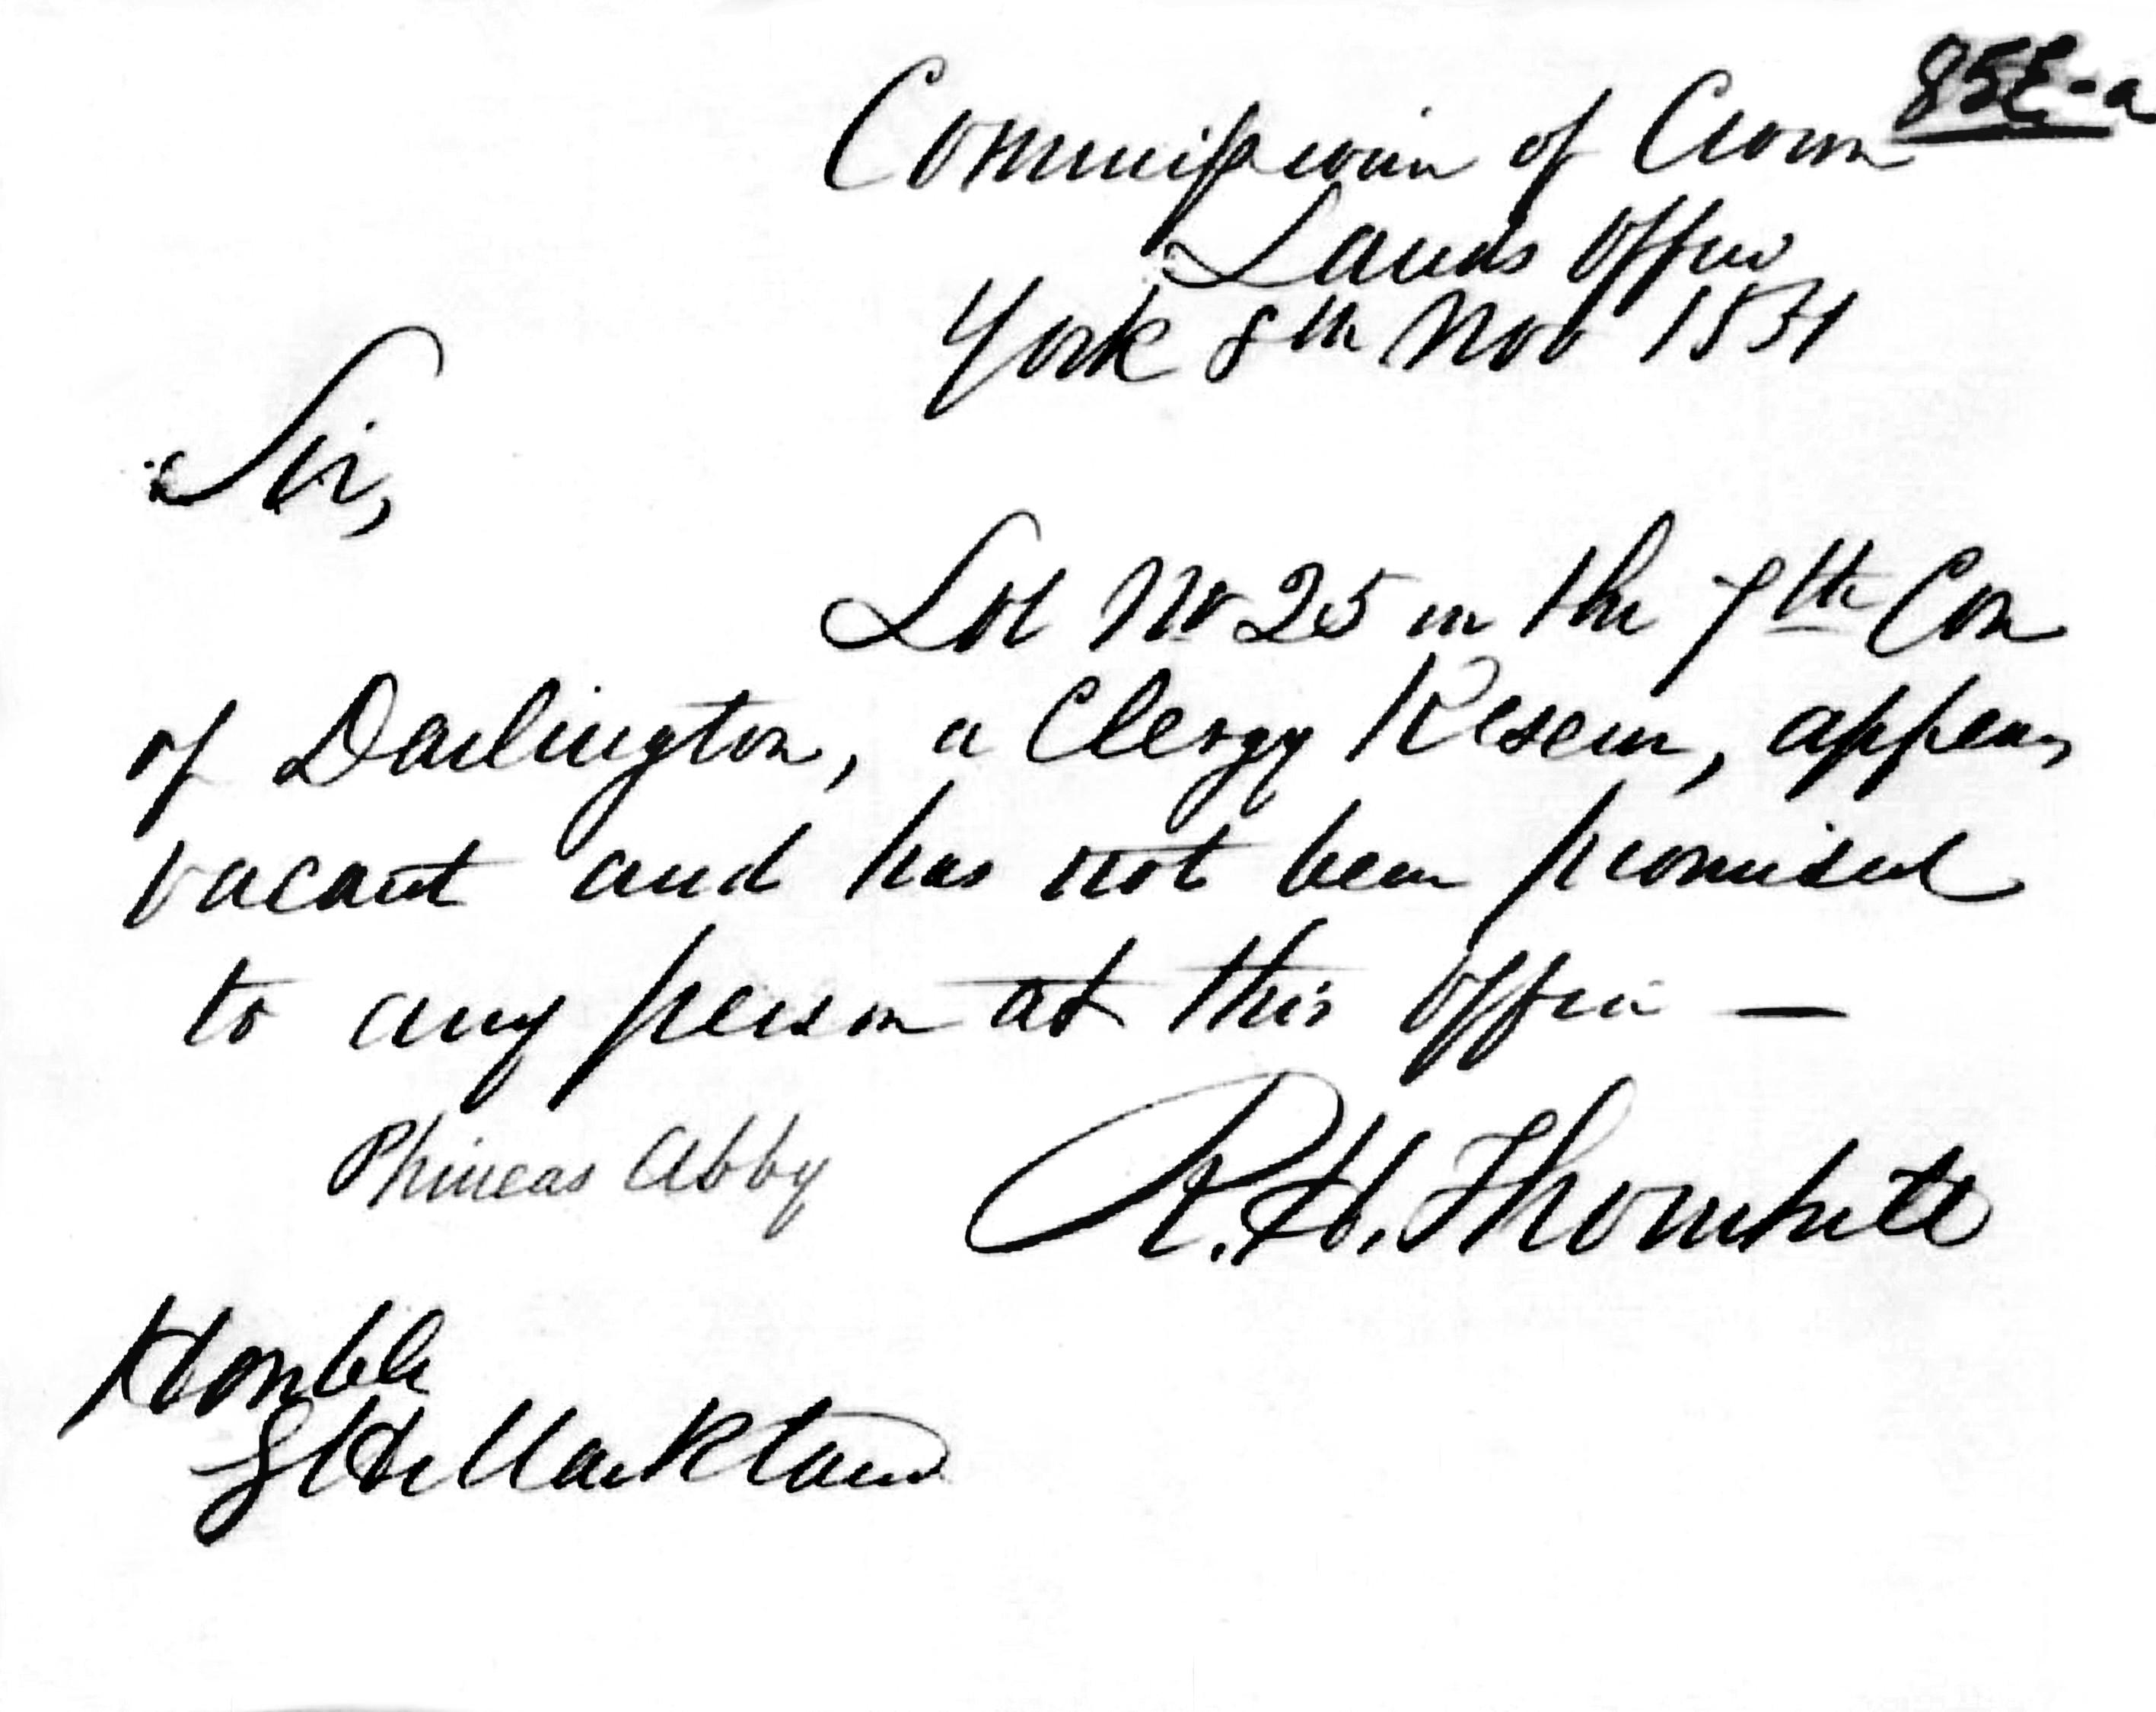 85E-a
Commissioner of Crown
Lands Office
York 8th Nov 1831
Sir,
Lot No 25 in the 7th Con
of Darlington, a Clergy Reserve, appears
vacant and has not been promised
to any person at this Office —
Phineas Abby
R.H. Thornhill
Honble
G H Markland